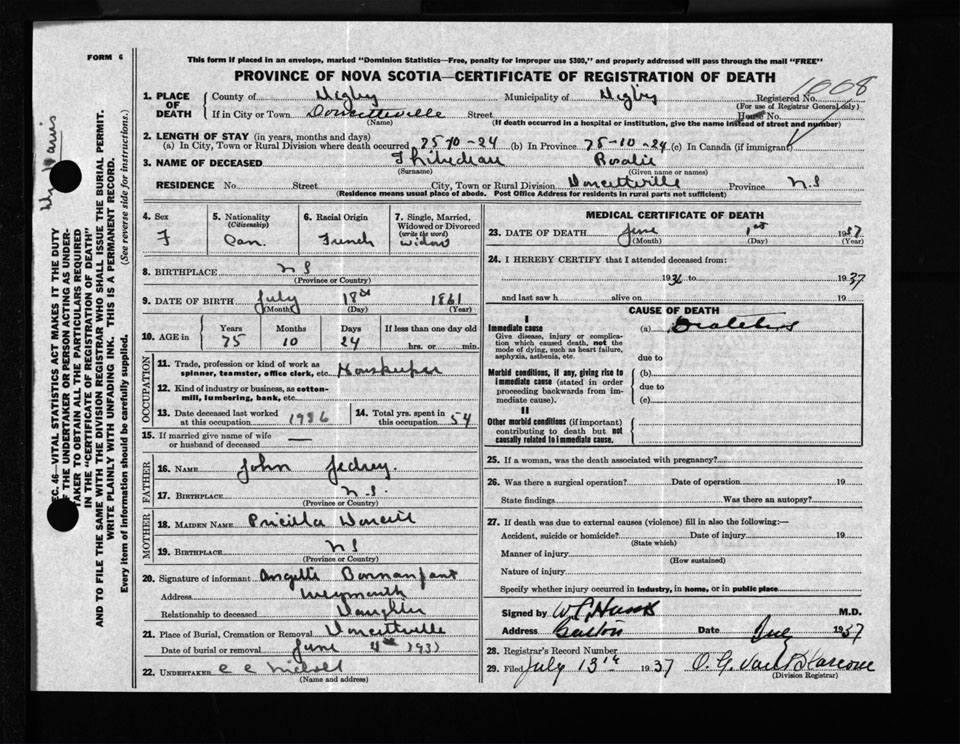 FORM 6
This form if placed in an envelope, marked "Dominion Statistics—Free, penalty for improper use $300," and properly addressed will pass through the mail "FREE"
PROVINCE OF NOVA SCOTIA—CERTIFICATE OF REGISTRATION OF DEATH
1008
1. PLACE OF DEATH
County of Digby Municipality of Digby Registered No.
(For use of Registrar General only)
If in City or Town Doucetteville Street House No.
(Name) (If death occurred in a hospital or institution, give the name instead of street and number)
2. LENGTH OF STAY (in years, months and days)
(a) In City, Town or Rural Division where death occurred 75-10-24 (b) In Province 75-10-24 (c) In Canada (if immigrant)
3. NAME OF DECEASED Thibedeau Rosalie
(Surname) (Given name or names)
RESIDENCE No. Street City, Town or Rural Division Doucettville Province N.S
(Residence means usual place of abode. Post Office Address for residents in rural parts not sufficient)
4. Sex F
5. Nationality (Citizenship) Can.
6. Racial Origin French
7. Single, Married, Widowed or Divorced (write the word) Widow
8. BIRTHPLACE N S
(Province or Country)
9. DATE OF BIRTH July 18th 1861
(Month) (Day) (Year)
10. AGE in Years 75 Months 10 Days 24 If less than one day old hrs. or min.
OCCUPATION
11. Trade, profession or kind of work as spinner, teamster, office clerk, etc. Houskeeper
12. Kind of industry or business, as cotton-mill, lumbering, bank, etc.
13. Date deceased last worked at this occupation 1936
14. Total yrs. spent in this occupation 54
15. If married give name of wife or husband of deceased —
FATHER
16. NAME John Jedrey.
17. BIRTHPLACE N.S.
(Province or Country)
MOTHER
18. MAIDEN NAME Pricilla
19. BIRTHPLACE N S
(Province or Country)
20. Signature of informant
Address Weymouth
Relationship to deceased Daughter
21. Place of Burial, Cremation or Removal Doucettville
Date of burial or removal June 4th 1937
22. UNDERTAKER
(Name and address)
MEDICAL CERTIFICATE OF DEATH
23. DATE OF DEATH June 1st 1937
(Month) (Day) (Year)
24. I HEREBY CERTIFY that I attended deceased from:
1936 to 1937
and last saw h alive on 19
CAUSE OF DEATH
I
Immediate cause (a) Diabetes
Give disease, injury or complication which caused death, not the mode of dying, such as heart failure, asphyxia, asthenia, etc.
due to
Morbid conditions, if any, giving rise to immediate cause (stated in order proceeding backwards from immediate cause).
(b)
due to
(c)
II
Other morbid conditions (if important) contributing to death but not causally related to immediate cause.
25. If a woman, was the death associated with pregnancy?
26. Was there a surgical operation? Date of operation 19
State findings Was there an autopsy?
27. If death was due to external causes (violence) fill in also the following:—
Accident, suicide or homicide? Date of injury 19
(State which)
Manner of injury
(How sustained)
Nature of injury
Specify whether injury occurred in industry, in home, or in public place
Signed by M.D.
Address Date 1937
28. Registrar's Record Number
29. Filed July 13th 1937
(Division Registrar)
SEC. 46—VITAL STATISTICS ACT MAKES IT THE DUTY
OF THE UNDERTAKER OR PERSON ACTING AS UNDER-
TAKER TO OBTAIN ALL THE PARTICULARS REQUIRED
IN THE "CERTIFICATE OF REGISTRATION OF DEATH"
AND TO FILE THE SAME WITH THE DIVISION REGISTRAR WHO SHALL ISSUE THE BURIAL PERMIT.
WRITE PLAINLY WITH UNFADING INK. THIS IS A PERMANENT RECORD.
Every item of information should be carefully supplied. (See reverse side for instructions.)